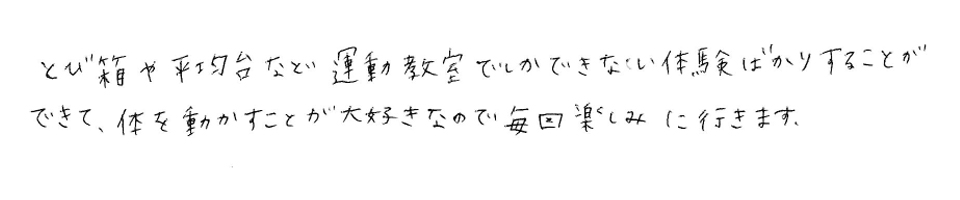 とび箱や平均台など運動教室でしかできない体験ばかりすることが
できて、体を動かすことが大好きなので毎回楽しみに行きます。